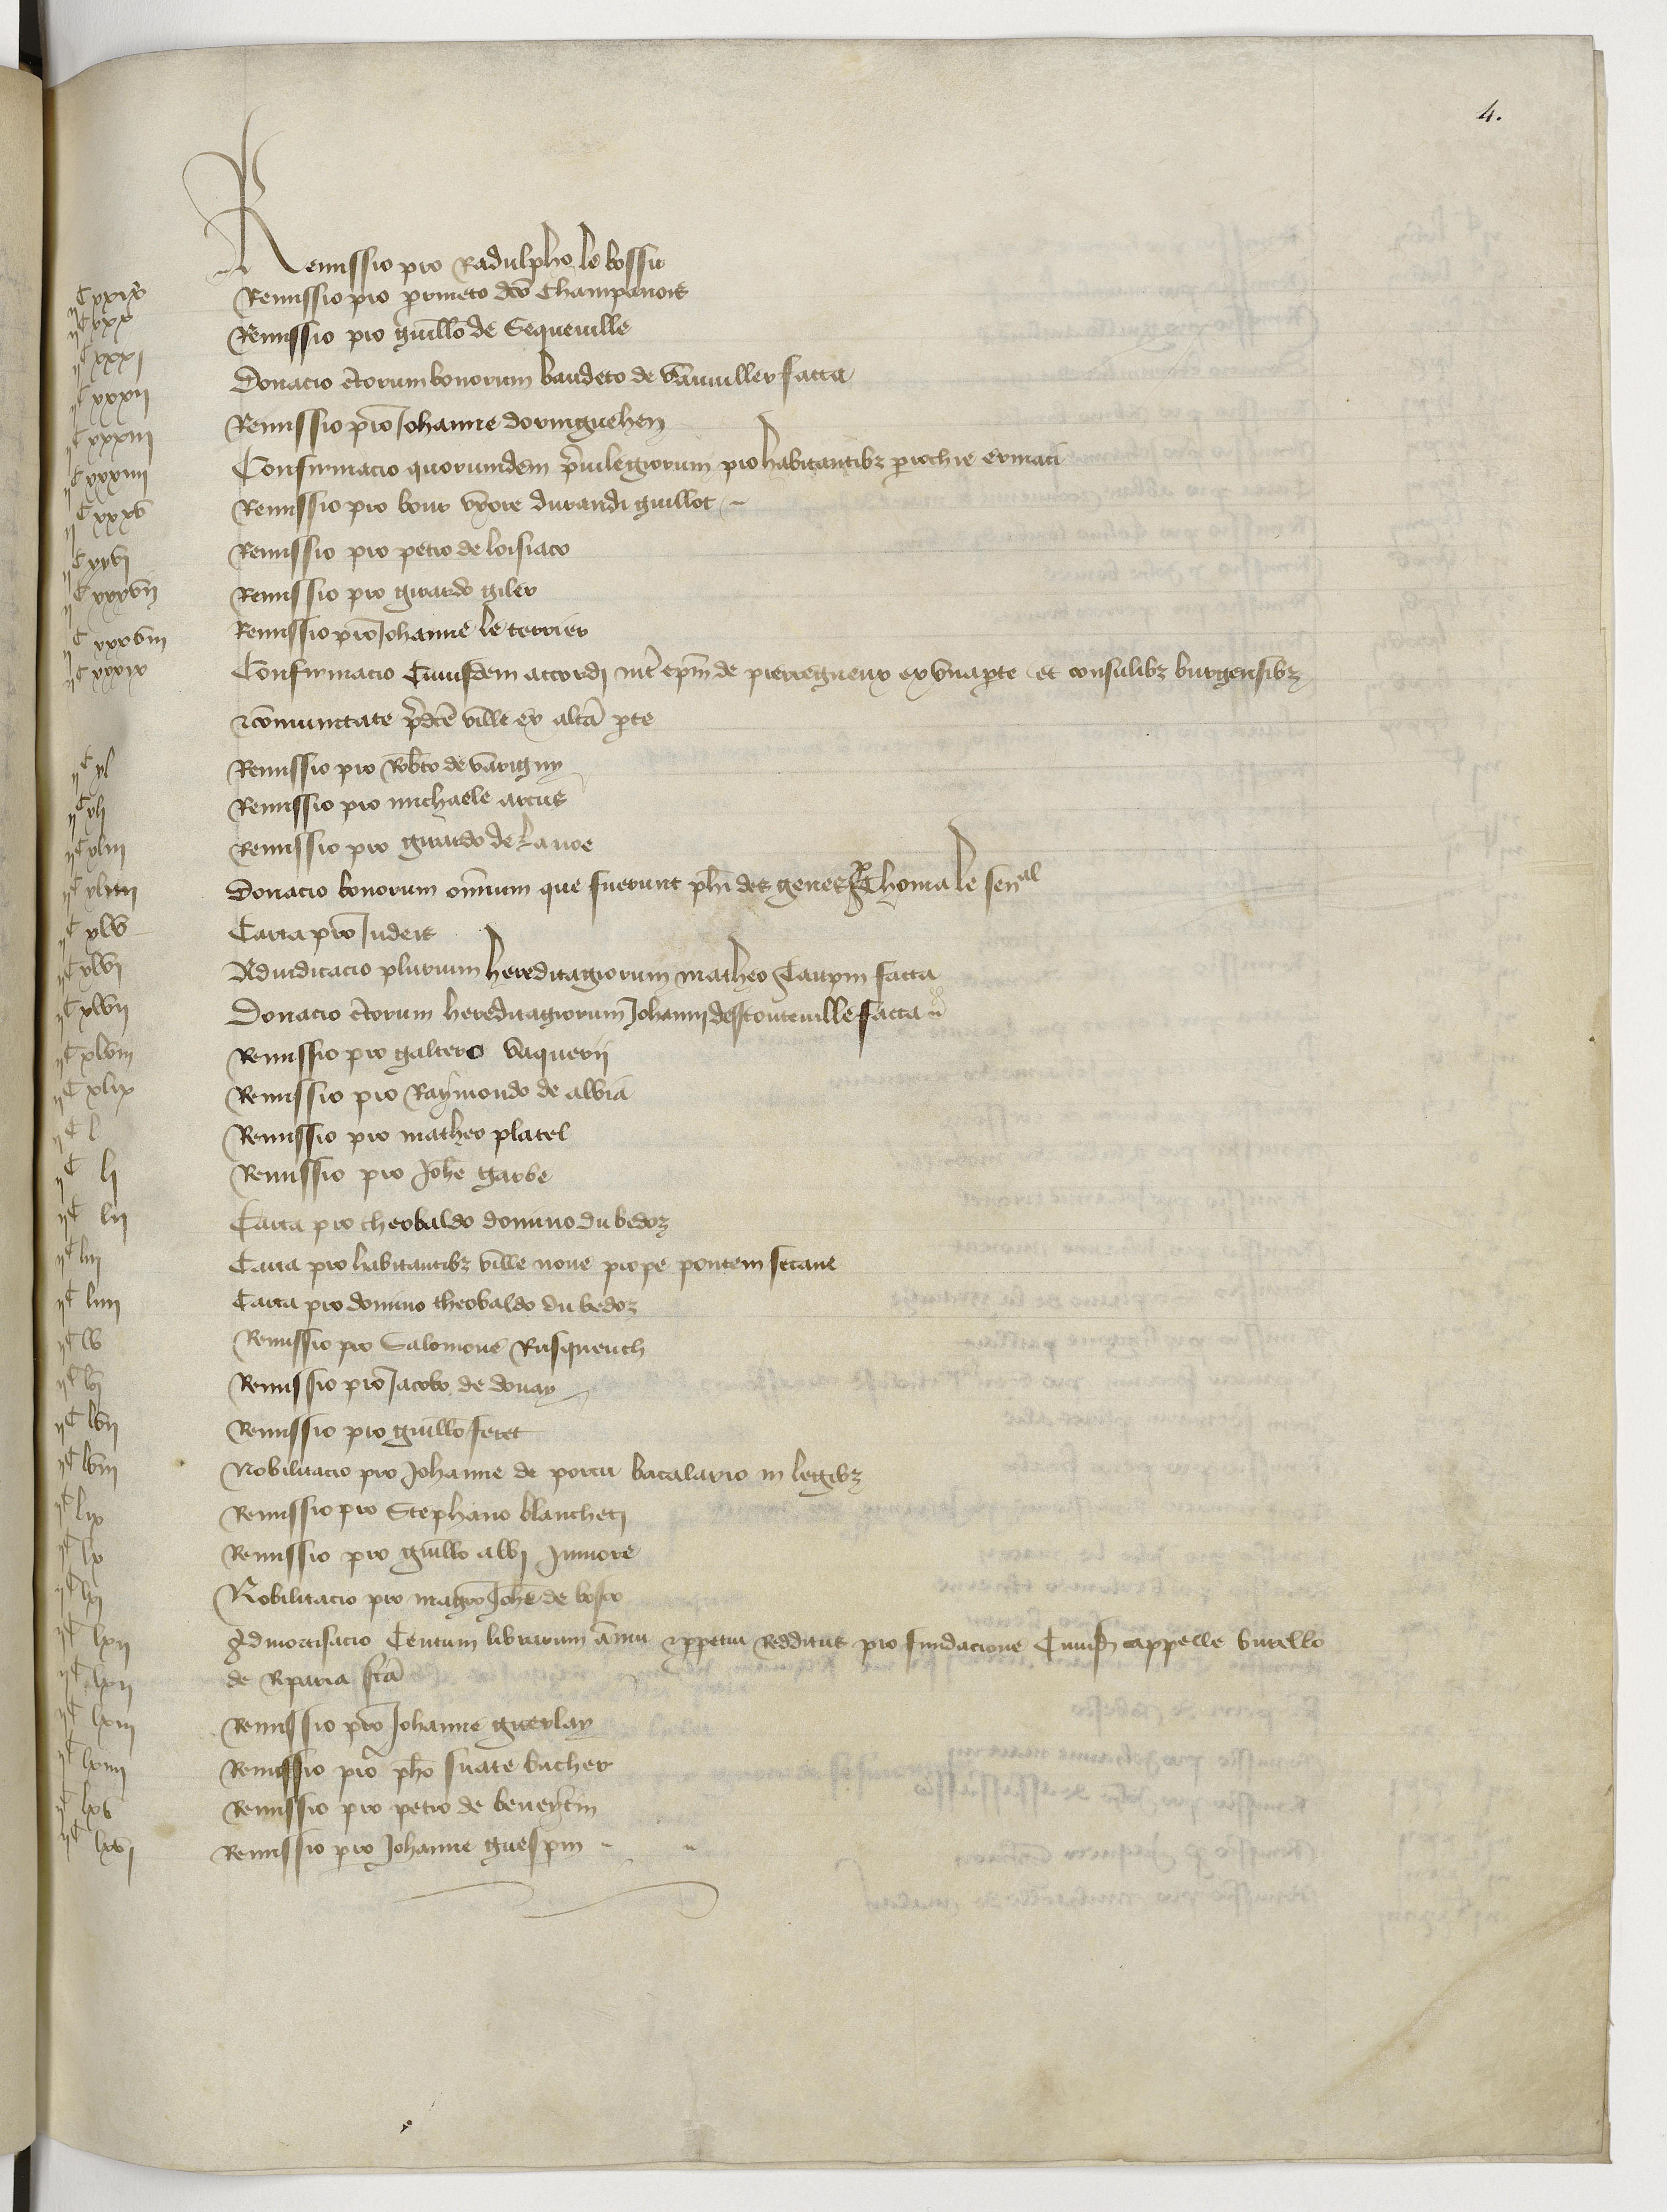 4.
Remissio pro Radulpho le bossu
IIC XXIX Remissio pro perineto dco Champanois
IIC XXX Remissio pro guillo de Sequeville
IIC XXXI Donacio ctorum bonorum baudeto de vauviller facta
IIC XXXII Remissio pro Johanne doringuehen
IIC XXXIII Confirmacio quorumdem privilegiorum pro habitantibz parochie ermaci
IIC XXXIIII Remissio pro bour uxore durandi guillot
IIC XXXV Remissio pro petro de loisiaco
IIC XXVI Remissio pro girardo giler
IIC XXXVII Remissio pro Johanne le terrier
IIC XXXVIII Confirmacio Cuiusdem accordi int epm de pierregueux ex una pte et consulibz burgensibz
IIC XXXIX
et comunitate pdce ville ex alta pte
IIC XL Remissio pro Robto de varigny
IIC XLI Remissio pro michaele arcus
IIC XLII Remissio pro girardo de Lanoe
IIC XLIIII Donacio bonorum omnium que fuerunt phi des genes Thoma le senal
IIC XLV Carta pro Judeis
IIC XLVI Adiudicacio plurium hereditagiorum matheo Caupin facta
IIC XLVII Donacio ctorum hereditagiorum Johanni destouteville facta
IIC XLVIII Remissio pro galtero vaquerii
IIC XLIX Remissio pro Raymondo de alvia
IIC L Remissio pro matheo platel
IIC LI Remissio pro Johe garbe
IIC LII Carta pro theobaldo domino du bedoz
IIC LIII Carta pro habitantibz ville nove prope pontem secane
IIC LIIII Carta pro domino theobaldo du bedoz
IIC LV Remissio pro Salomone Rusqueuch
IIC LVI Remissio pro Jacobo de douay
IIC LVII Remissio pro guillo feret
IIC LVIII Nobilitacio pro Johanne de porcu bacalario in legibz
IIC LIX Remissio pro Stephano blancheti
IIC LX Remissio pro guillo albi Juniore
IIC LXI Nobilitacio pro magro Johe de bosco
IIC LXII Admortisacio Centum librarum annui et ppetui Redditus pro fundacione Cuiusd cappelle burello
IIC LXII de Riparia fca
IIC LXIII Remissio pro Johanne guerlay
IIC LXIIII Remissio pro pho suate bucher
IIC LXV Remissio pro petro de beneyctin
IIC LXVI Remissio pro Johanne guespin